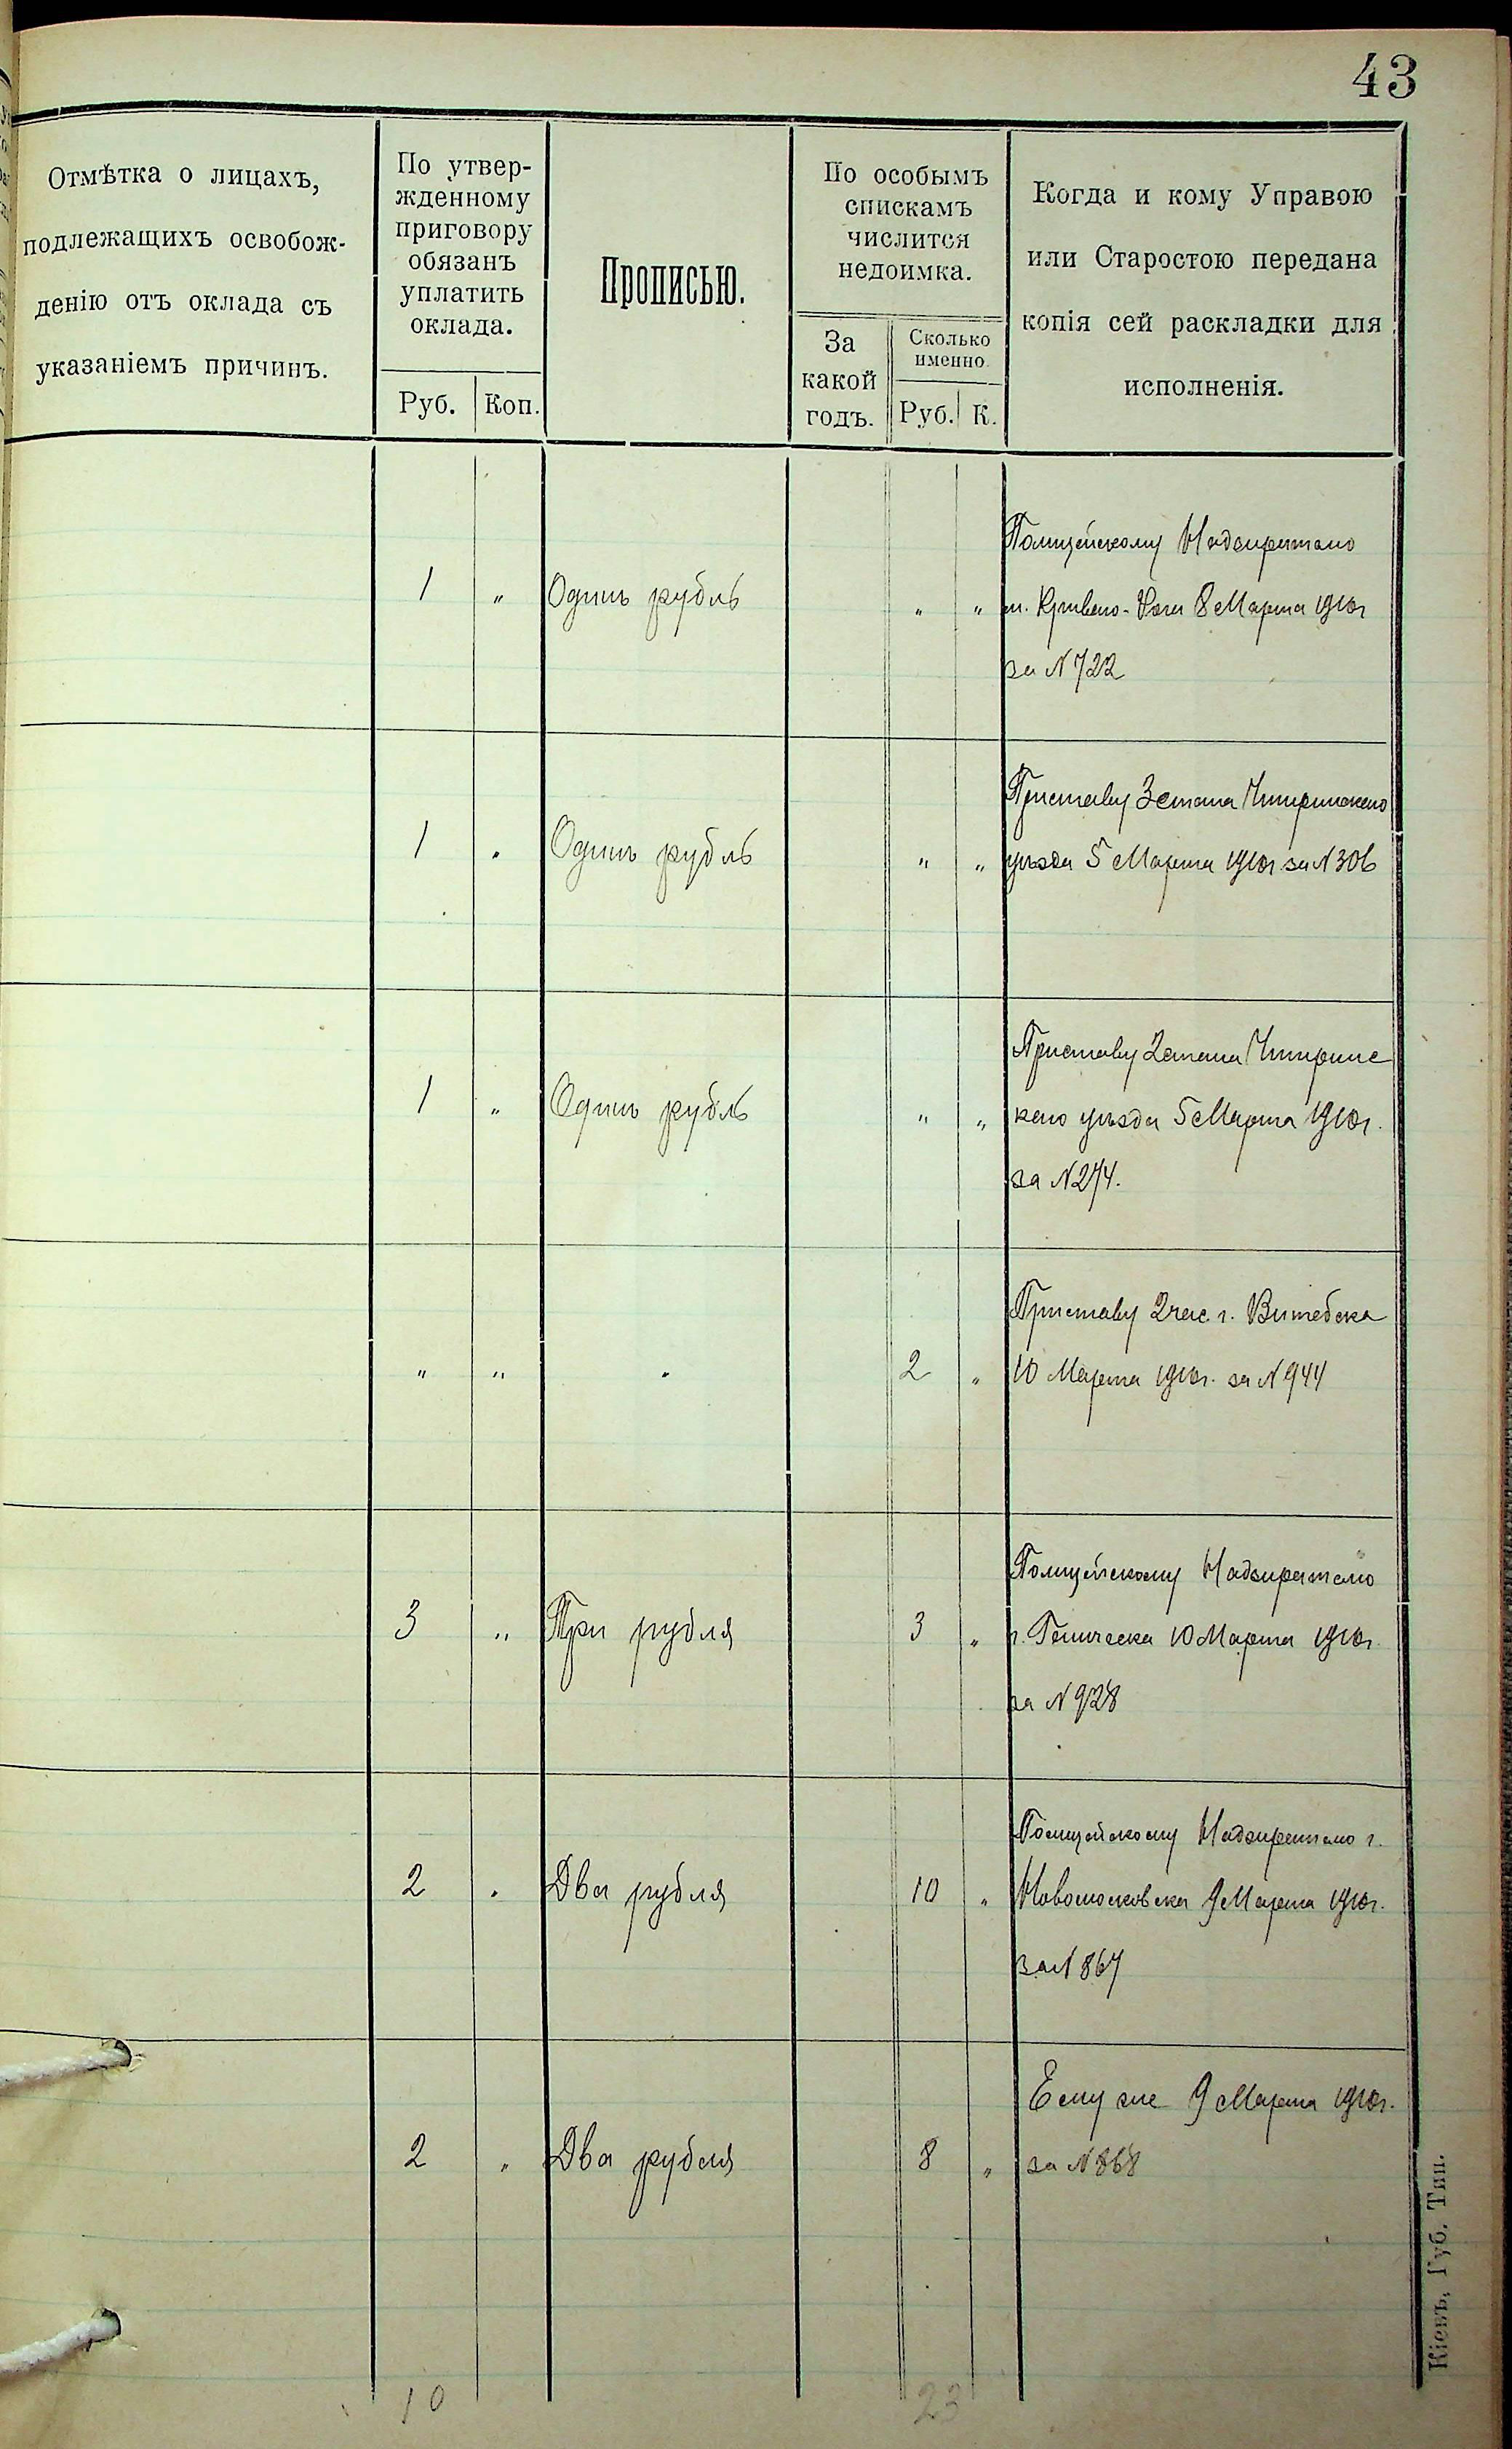 43
Отмѣтка о лицахъ,
подлежащихъ освобож-
денію отъ оклада съ
указаніемъ причинъ.
По утвер-
жденному
приговору
обязанъ
уплатить
оклада.
Руб. Коп.
Прописью.
По особымъ
спискамъ
числится
недоимка.
За
какой
годъ.
Сколько
именно.
Руб. К.
Когда и кому Управою
или Старостою передана
копія сей раскладки для
исполненія.
1 „ Одинъ рубль „ „
Полицейскому Надзирателю
м. Кривого-Рога 8 Марта 1910г
за N 722
1 „ Одинъ рубль „ „
Приставу 3 стана Чигиринскаго
уѣзда 5 Марта 1910г. за N 306
1 „ Одинъ рубль „ „
Приставу 2 стана Чигиринс
каго уѣзда 5 Марта 1910г.
за N 274.
„ „ „ 2 „
Приставу 2 час. г. Витебска
10 Марта 1910г. за N 944
3 „ Три рубля 3 „
Полицейскому Надзирателю
г. Геническа 10 Марта 1910г.
за N 928
2 „ Два рубля 10 „
Полицейскому Надзирателю г.
Новомосковска 9 Марта 1910г.
за N 867
2 „ Два рубля 8 „
Ему же 9 Марта 1910г.
за N 868
10 23
Кіевъ, Губ. Тип.